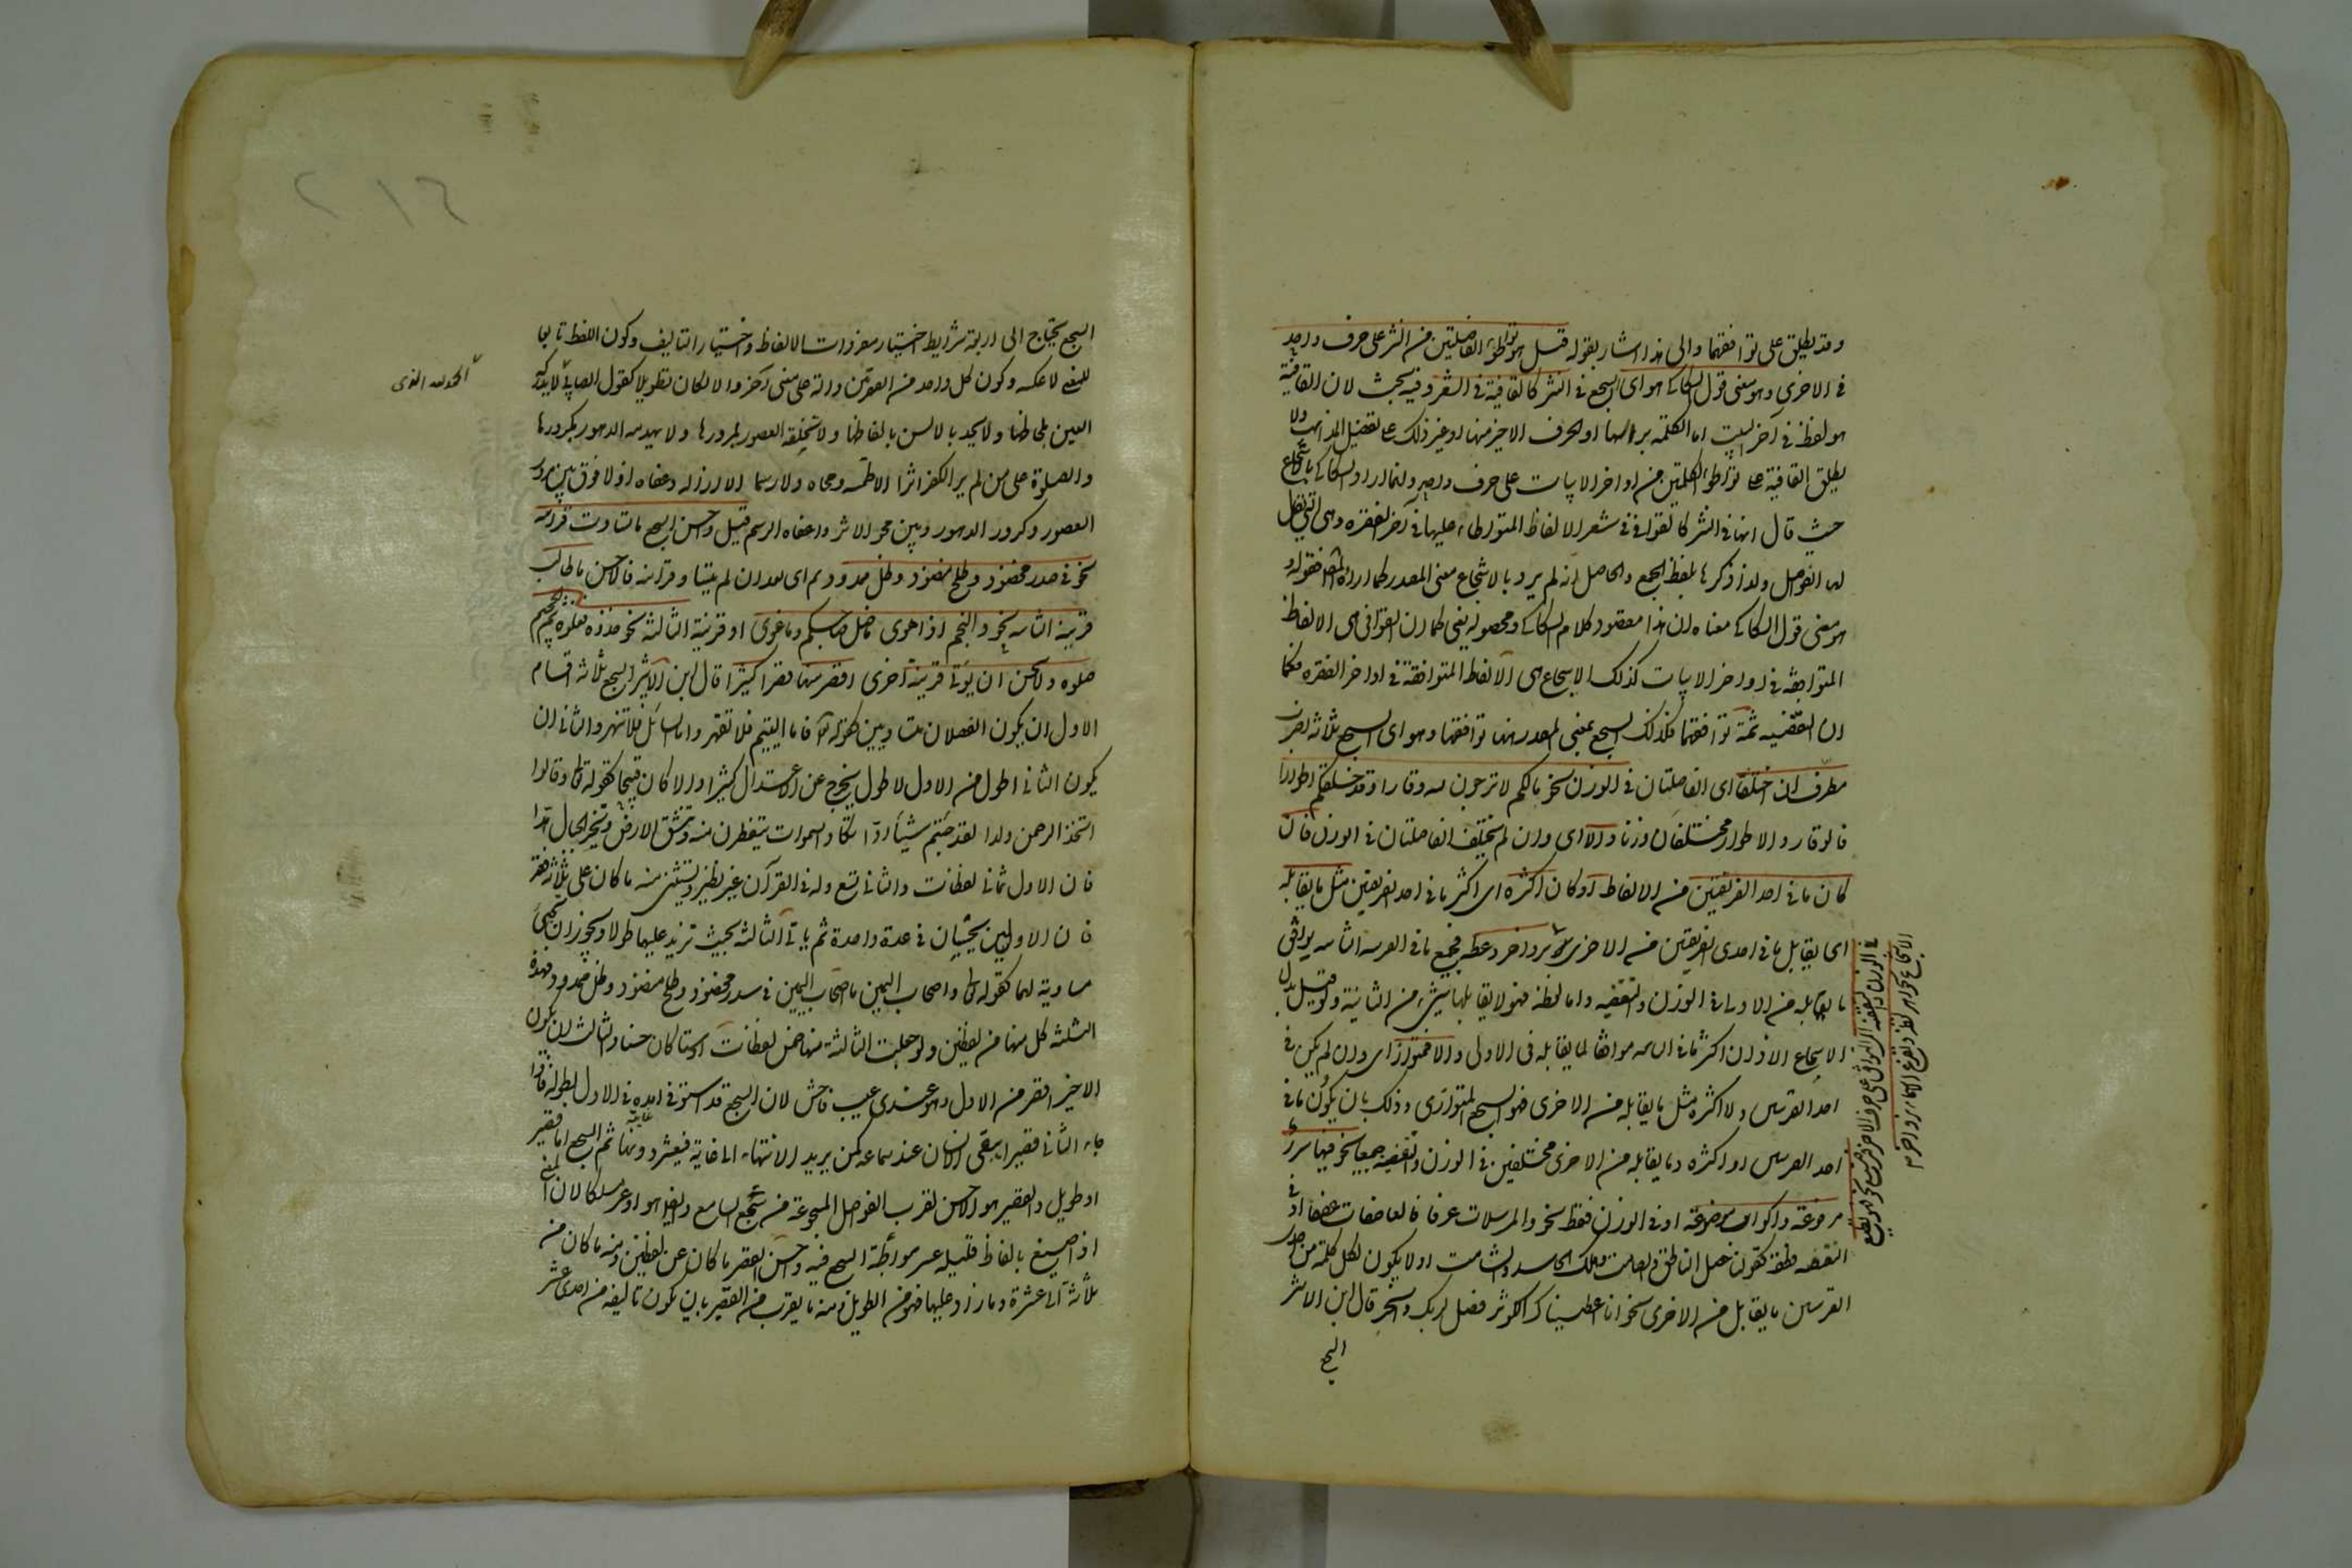 وقد يطلق على توافقهما والى هذا اشار بقوله قيل هو تواطؤ الفاصلتين من النثر على حرف واحد
فى الاخرى وهو معنى قول السكاكى هو اى السجع فى النثر كالقافية فى الشعر وفيه بحث لان القافية
هو لفظ فى آخر البيت اما الكلمة براسها او الحرف الاخير منها او غير ذلك على تفصيل المذاهب ولا
يطلق القافية على تواطؤ الكلمتين من اواخر الابيات على حرف واحد وانما اراد السكاكى بالاسجاع
حيث قال انها فى النثر كالقوافى فى شعر الالفاظ المتواطاء عليها فى آخر الفقره وهى التى يقال
لها الفواصل ولذا ذكرها بلفظ الجمع والحاصل انه لم يرد بالاسجاع معنى المصدر كما اراده المص فقوله و
هو معنى قول السكاكى معناه ان هذا مقصود كلام السكاكى ومحصوله يعنى كما ان القوافى هى الالفاظ
المتوافقه فى اواخر الابيات كذلك الاسجاع هى الالفاظ المتوافقة فى اواخر الفقره فكما
ان التقفيه ثمة توافقهما فكذلك السجع بمعنى المصدر هنا توافقهما وهو اى السجع ثلاثه اضرب
مطرف ان اختلفا اى الفاصلتان فى الوزن نحو مالكم لا ترجون لله وقارا وقد خلقكم اطوارا
فالوقار والاطوار مختلفان وزنا والا اى وان لم يختلف الفاصلتان فى الوزن فان
كان ما فى احد القرينتين من الالفاظ او كان اكثره اى اكثر ما فى احد القرينتين مثل ما يقابله
اى يقابل ما فى احدى القرينتين من الاخرى بزواجر وعظه فجميع ما فى القرينه الثانيه يوافق
ما يقابله من الاولى فى الوزن والتقفيه واما لفظة فهو لا يقابلها شىء من الثانية ولو قيل بدل
الاسجاع الاذان اكثر ما فى الثانيه موافقا لما يقابله فى الاولى والا فمتواز اى وان لم يكن فى
احد القرينتين ولا اكثره مثل ما يقابله من الاخرى فهو السجع المتوازى وذلك بان يكون ما فى
احد القرينتين او اكثره وما يقابله من الاخرى مختلفين فى الوزن والتقفيه جميعا نحو فيها سرر
مرفوعة واكواب موضوعة او فى الوزن فقط نحو والمرسلات عرفا فالعاصفات عصفا او فى
التقفيه فقط كقولنا حصل الناطق والصامت وهلك الحاسد والشامت او لا يكون لكل كلمة من احد
القرينتين مايقابل من الاخرى نحو انا اعطيناك الكوثر فصل لربك وانحر قال ابن الاثير
السجع
فى الوزن والتقفيه اى التوافق على حرف الاخر فترصيع نحو فهو يطبع
الاسجاع بجواهر لفظه ويقرع الاسماع بزواجر
السجع يحتاج الى اربعة شرايط اختيار مفردات الالفاظ واختيار التاليف وكون اللفظ تابعا
للمعنى لا عكسه وكون كل واحد من الفقرتين دالة على معنى آخر والا لكان تطويلا كقول الصابى لا يدركه
العين بلحاظها ولا يحده الالسن بالفاظها ولا تخلقه العصور بمرورها ولا يهدمه الدهور بكرورها
والصلوة على من لم ير للكفر اثرا الا طمسه ومحاه ولا رسما الا ازاله وعفاه اذ لا فرق بين مرور
العصور وكرور الدهور وبين محو الاثر واعفاء الرسم قيل واحسن السجع ما تساوت قراينه
نحو فى سدر مخضود وطلح منضود وظل ممدود ثم اى بعد ان لم يتساو قراينه فالاحسن ما طالت
قرينة الثانيه نحو والنجم اذا هوى ما ضل صاحبكم وما غوى او قرينة الثالثة نحو خذوه فغلوه ثم الجحيم
صلوه ولا يحسن ان يؤتى قرينة اخرى اقصر منها قصرا كثيرا قال ابن الاثير السجع ثلاثه اقسام
الاول ان يكون الفصلان متساويين كقوله تعالى فاما اليتيم فلا تقهر واما السائل فلا تنهر والثانى ان
يكون الثانى اطول من الاول لا طول يخرج عن الاعتدال كثيرا والا كان قبيحا كقوله تعالى وقالوا
اتخذ الرحمن ولدا لقد جئتم شيئا ادّا تكاد السموات يتفطرن منه وتنشق الارض وتخر الجبال هدا
فان الاول ثمانى لفظات والثانى تسع وله فى القرآن غير نظير ويستثنى منه ما كان على ثلاثه فقر
فان الاوليين يحسبان فى عدة واحدة ثم ياتى الثالثه بحيث تزيد عليهما طولا ويجوز ان تجىء
مساوية لهما كقوله تعالى واصحاب اليمين ما اصحاب اليمين فى سدر مخضود وطلح منضود وظل ممدود فهذه
الثلثه كل منها من لفظتين ولو جعلت الثالثة منها خمس لفظات او ستا كان حسنا والثالث ان يكون
الاخير اقصر من الاول وهو عندى عيب فاحش لان السجع قد استوفى امده فى الاول بطوله فاذا
جاء الثانى قصيرا يبقى الانسان عند سماعه كمن يريد الانتهاء الى غاية فيعثر دونها ثم السجع اما قصير
او طويل والقصير هو الاحسن لقرب الفواصل المسجوعة من سمع السامع وايضا هو اوعر مسلكا لان المعنى
اذا صيغ بالفاظ قليله عسر مواطة السجع فيه واحسن القصير ما كان عن لفظتين ومنه ما كان من
ثلاثة الى عشرة وما زاد عليها فهو من الطويل ومنه ما يقرب من القصير بان يكون تاليفه من احدى عشر
الحمد لله الذى